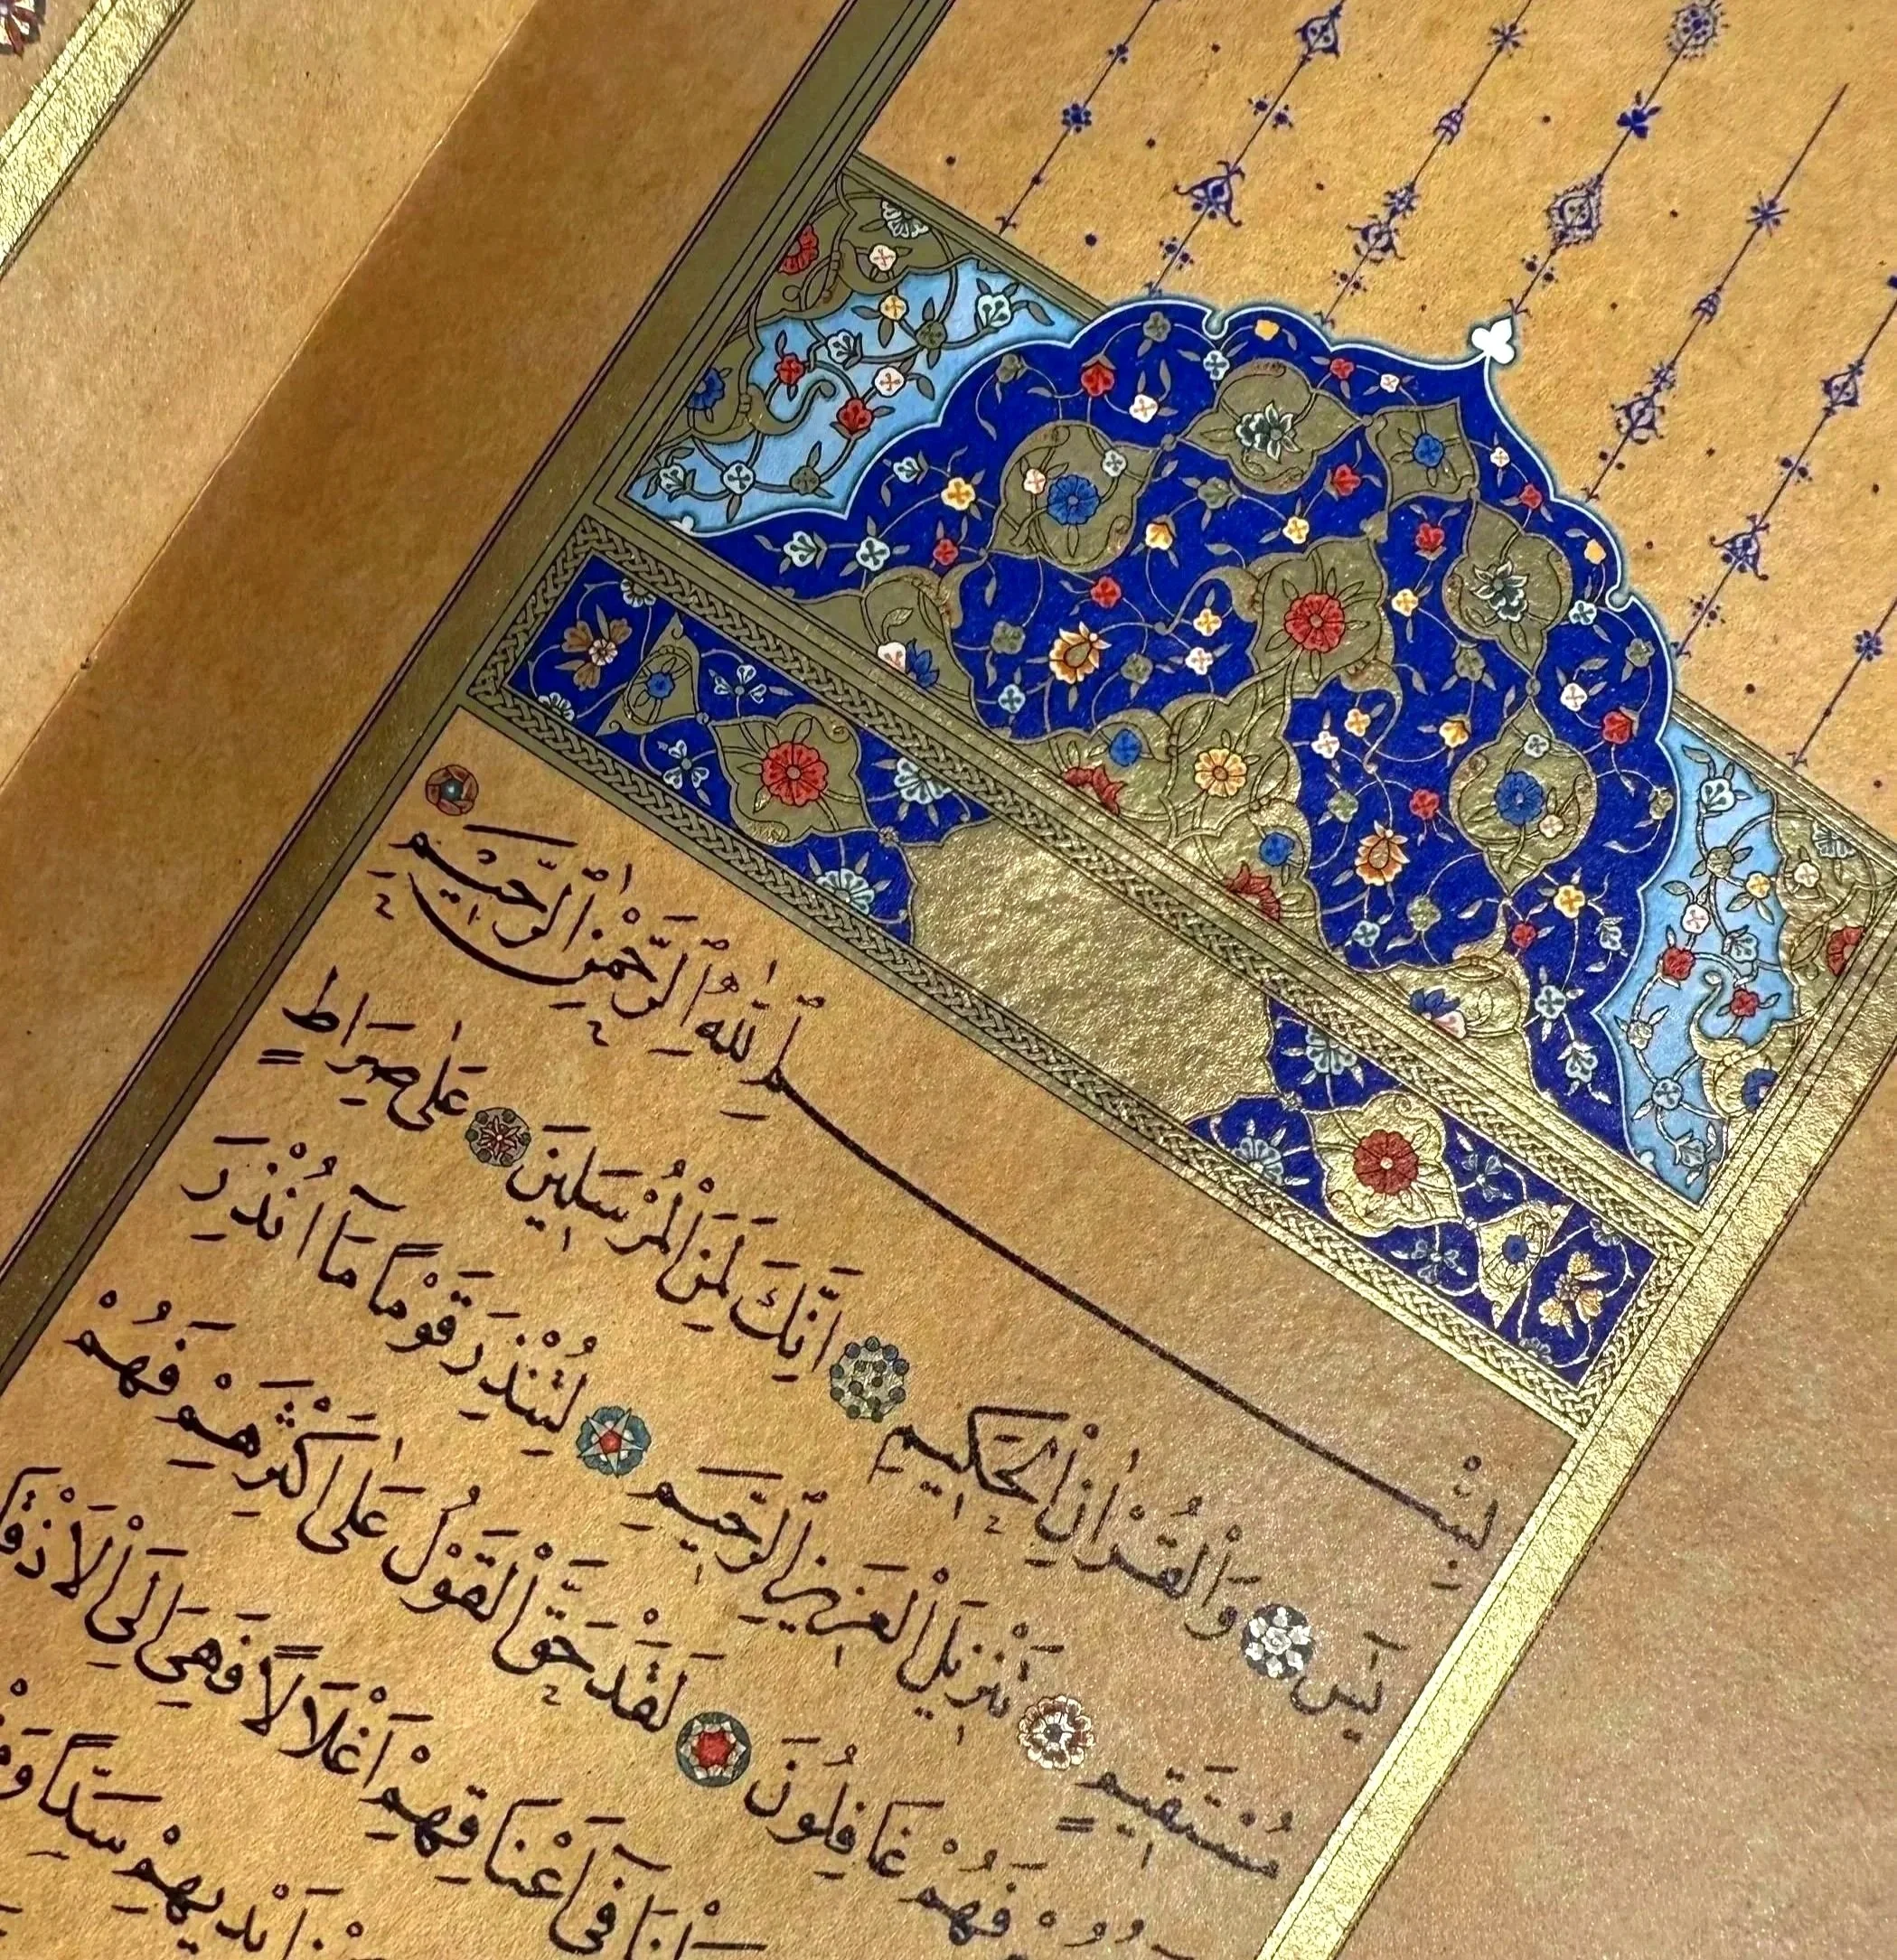 بِسْمِ اللّٰهِ الرَّحْمٰنِ الرَّحِيمِ
يٰسٓ وَالْقُرْاٰنِ الْحَكِيمِ اِنَّكَ لَمِنَ الْمُرْسَلِينَ عَلٰى صِرَاطٍ
مُسْتَقِيمٍ تَنْزِيلَ الْعَزِيزِ الرَّحِيمِ لِتُنْذِرَ قَوْمًا مَٓا اُنْذِرَ
فَهُمْ غَافِلُونَ لَقَدْ حَقَّ الْقَوْلُ عَلٰٓى اَكْثَرِهِمْ فَهُمْ
فِٓى اَعْنَاقِهِمْ اَغْلَالًا فَهِىَ اِلَى
اَيْدِيهِمْ سَدًّا